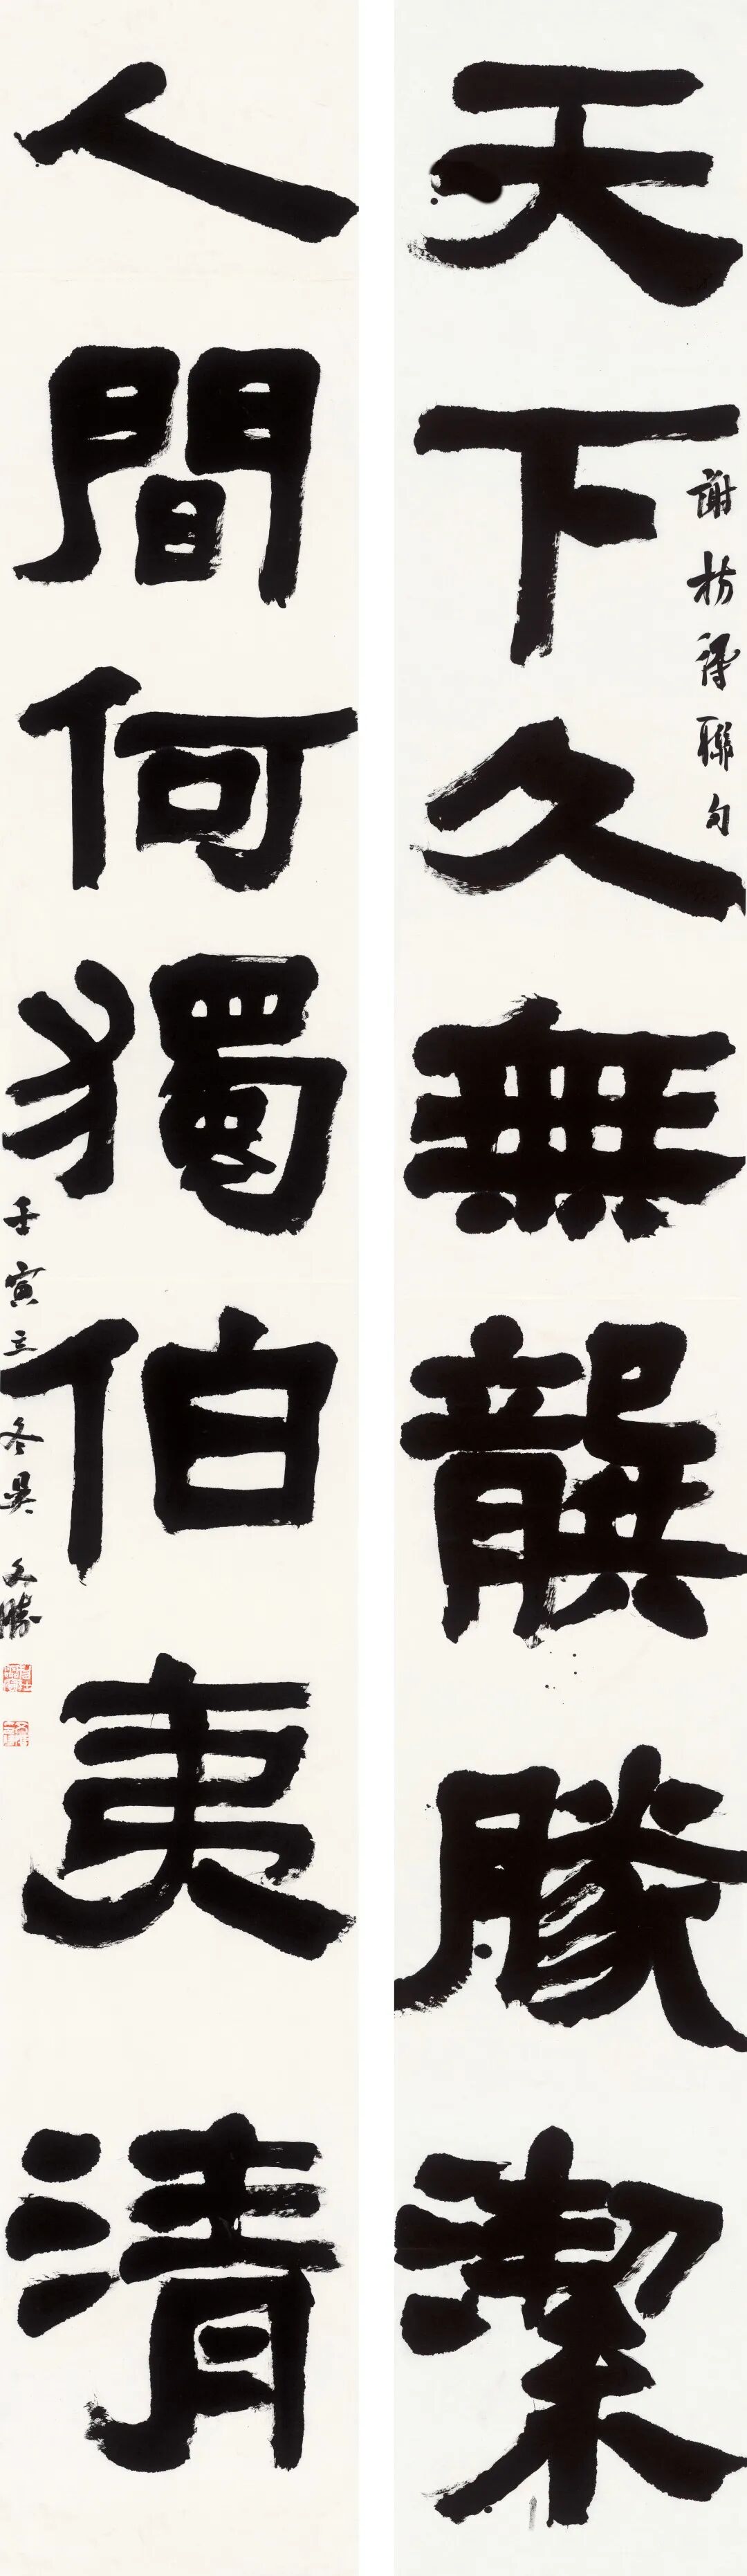 天下久無龔勝潔
謝枋得聯句
人間何獨伯夷清
壬寅立冬吳文勝